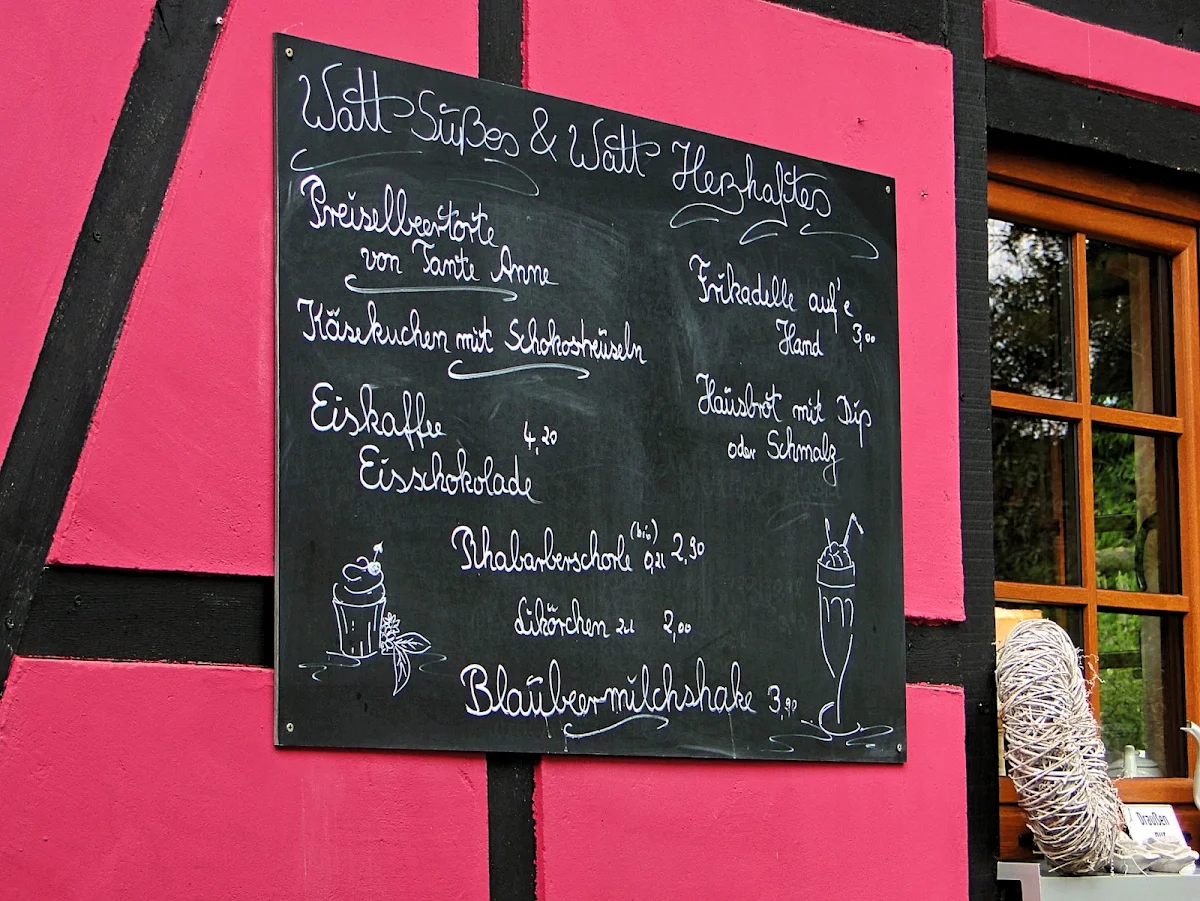 Watt Süßes & Watt Herzhaftes
Preiselbeertorte
von Tante Anne
Käsekuchen mit Schokostreuseln
Eiskaffee
4,20
Eisschokolade
Frikadelle auf'e
Hand 3,00
Hausbrot mit Dip
oder Schmalz
Rhabarberschorle (bio) 0,2l 2,90
Likörchen 2cl 2,00
Blaubeermilchshake 3,90
Draußen
nur